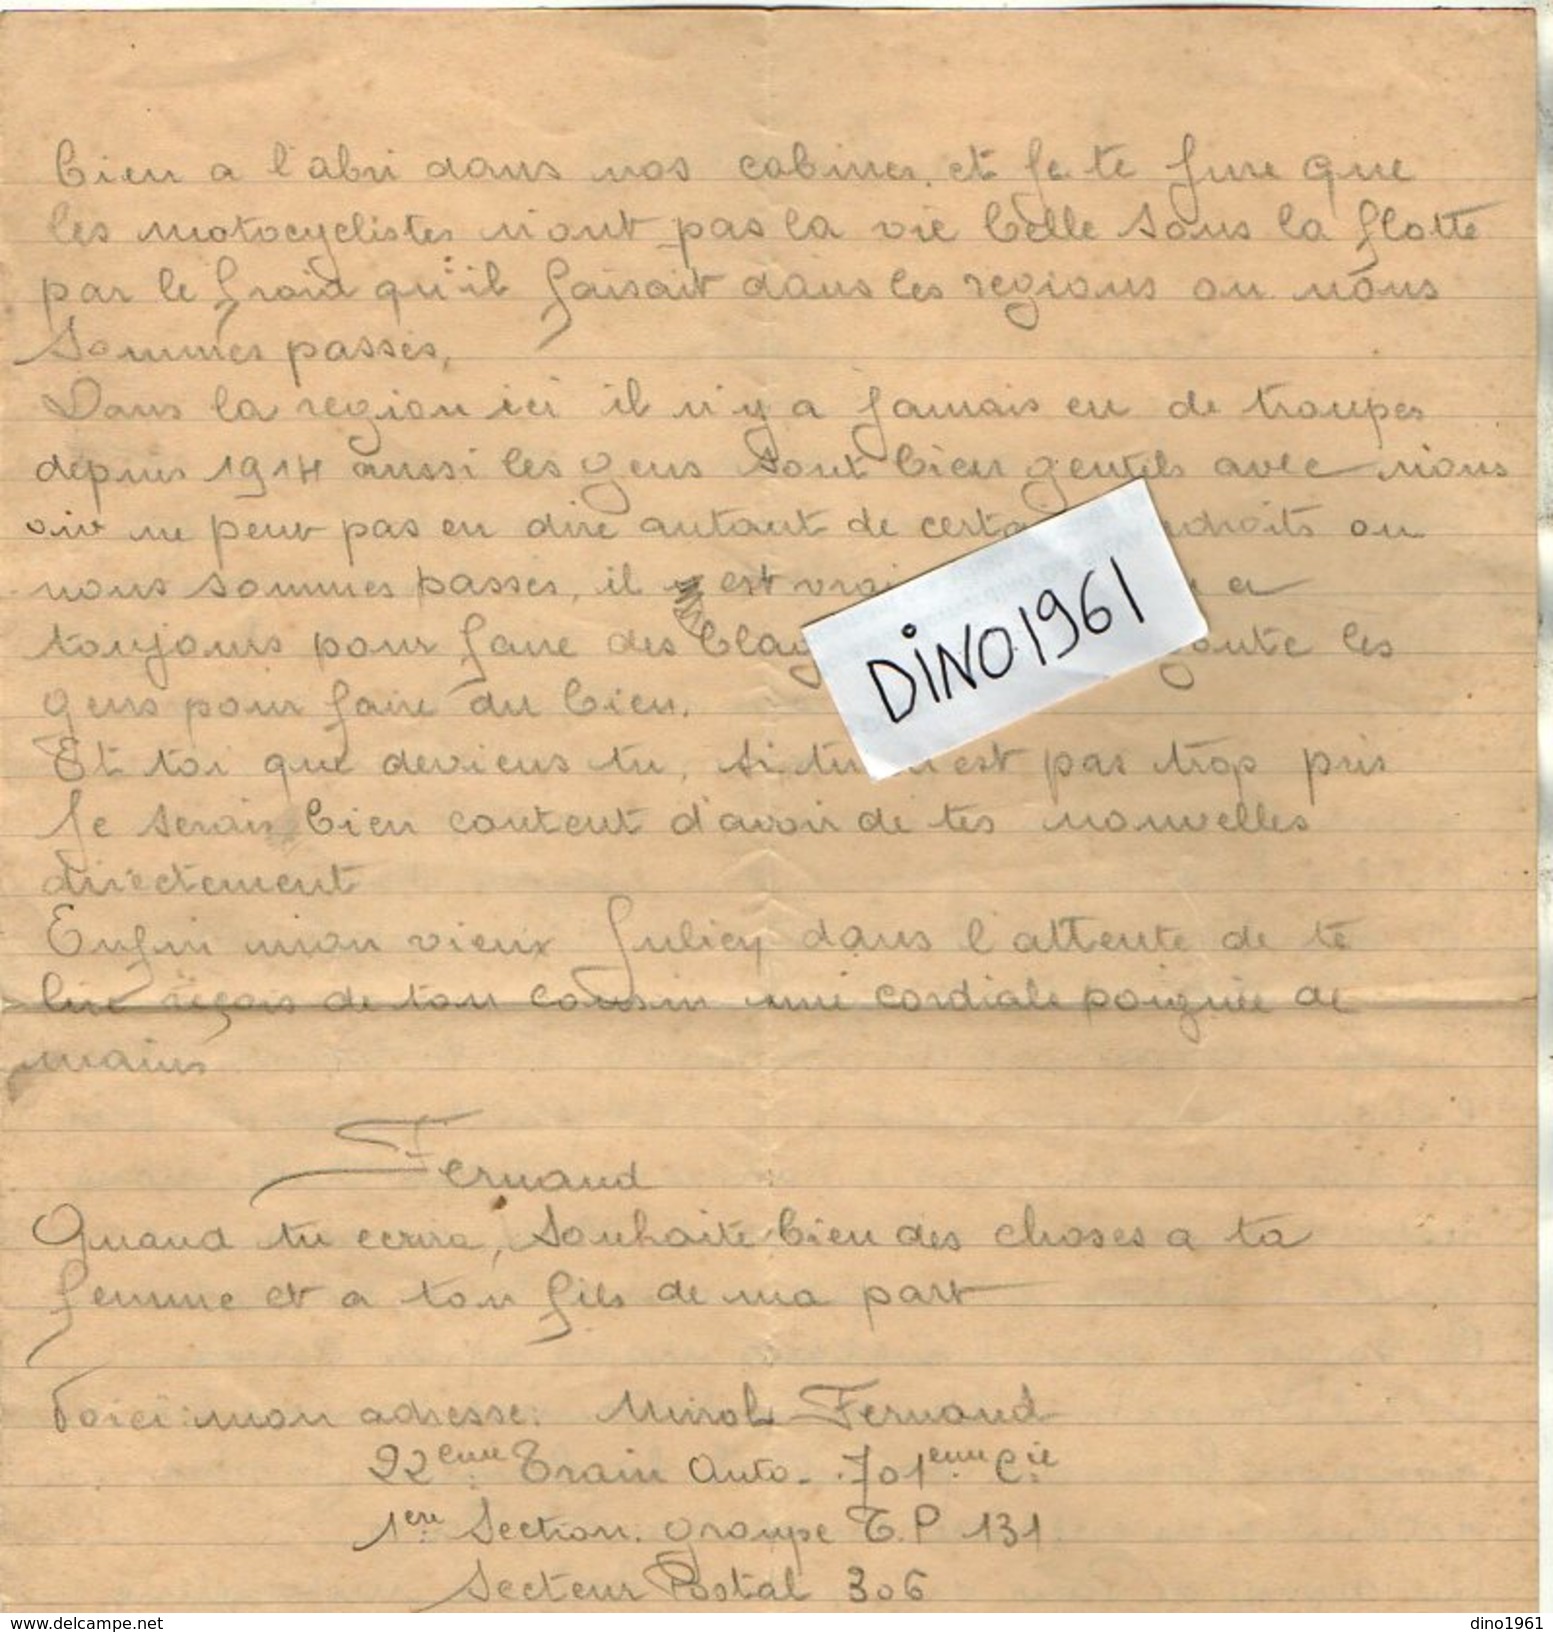 bien a l'abri dans nos cabines, et je te jure que
les motocyclistes n'ont pas la vie belle sous la flotte
par le froid qu'il faisait dans les regions ou nous
sommes passés,
Dans la region ici il n'y a jamais eu de troupes
depuis 1914 aussi les gens sont bien gentils avec nous
on ne peut pas en dire autant de certa droits ou
nous sommes passés, il est vrai a
toujours pour faire des blag les
gens pour faire du bien.
Et toi que deviens tu, si tu est pas trop pris
je serais bien content d'avoir de tes nouvelles
directement
Enfin mon vieux Julien dans l'attente de te
lire reçois de ton cousin une cordiale poignée de
mains
Fernand
Quand tu ecrira, souhaite bien des choses a ta
femme et a ton fils de ma part
Voici mon adresse: Fernand
22eme Train Auto. 701eme Cie
1ere Section. Groupe T.P 131
Secteur Postal 306
DINO1961
www.delcampe.net
dino1961